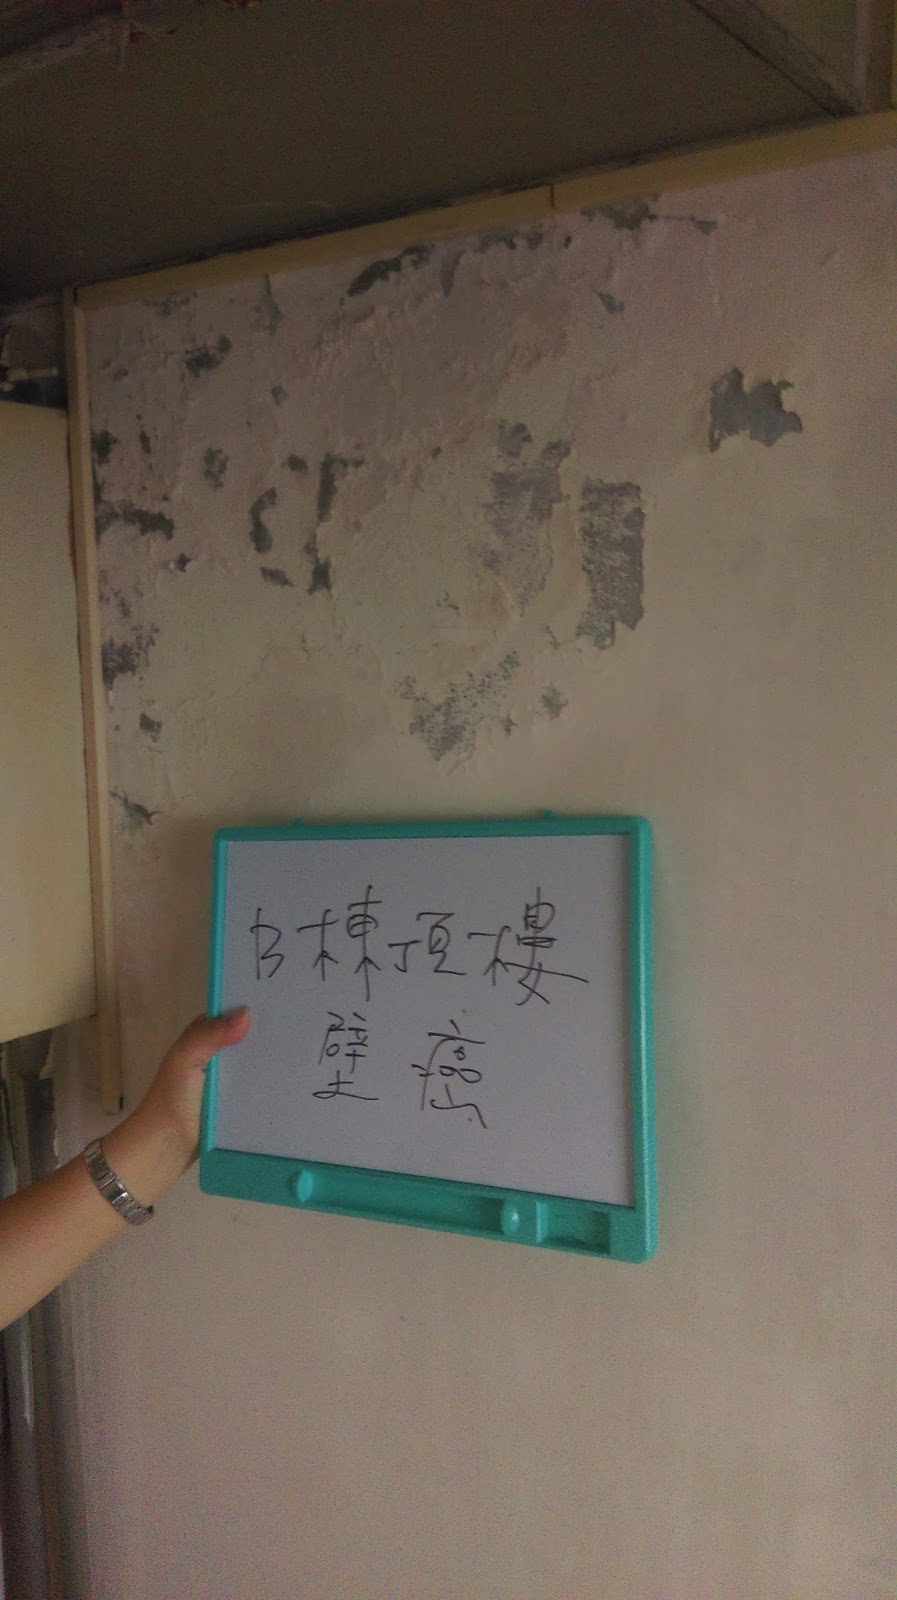 B棟頂樓
壁癌